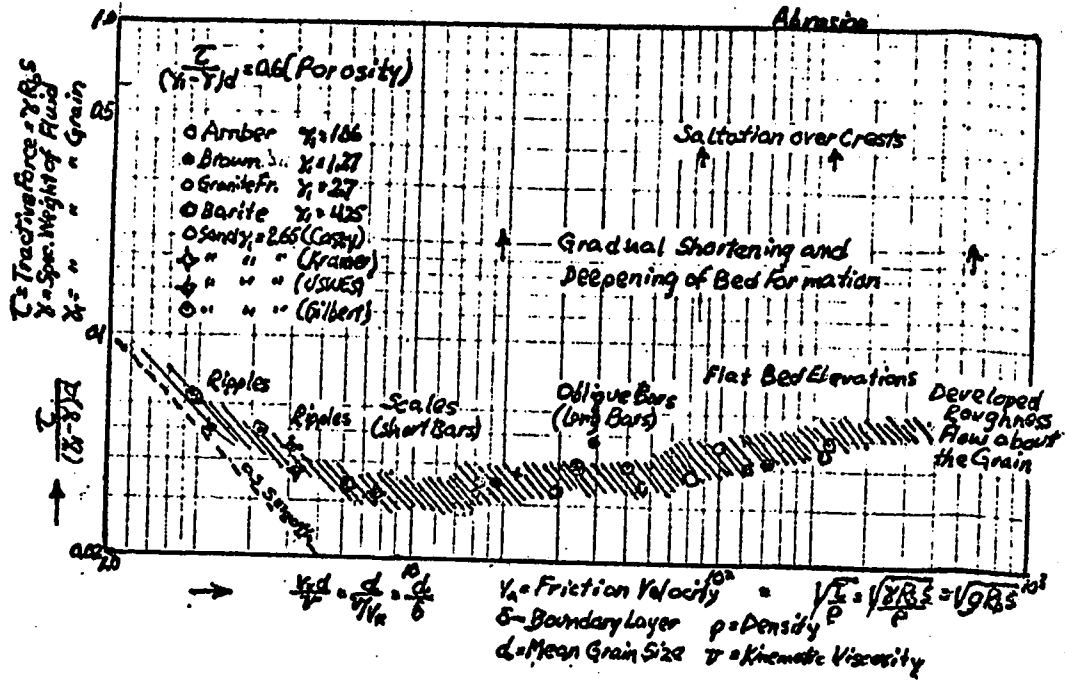 Abrasion
1.0
0.5
0.1
0.02
τ = Tractive Force = γRbS
γ = Spec. Weight of Fluid
γ1 = " " " Grain
τ/(γ1-γ)d
τ/(γ1-γ)d = 0.6 (Porosity)
Amber γ1=1.06
Brown γ1=1.27
Granite Fr. γ1=2.7
Barite γ1=4.25
Sand γ1=2.65 (Casey)
" " " (Kramer)
" " " (USWES)
" " " (Gilbert)
Saltation over Crests
Gradual Shortening and
Deepening of Bed Formation
Ripples
Ripples
Scales
(short Bars)
Oblique Bars
(Long Bars)
Flat Bed Elevations
Developed
Roughness
Flow about
the Grain
Smooth
1.0
10
10²
10³
v*d/ν = d/(ν/v*) = d/δ
v* = Friction Velocity = √τ/ρ = √γRbS/ρ = √gRbS
δ - Boundary Layer ρ = Density
d = Mean Grain Size ν = Kinematic Viscosity